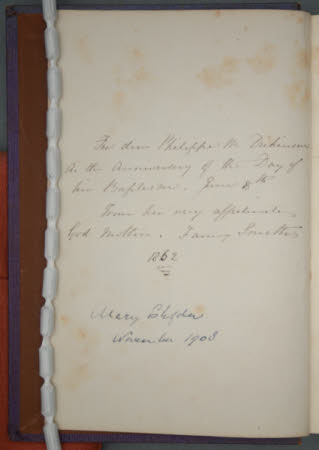 For dear Philippa M. Dickinson
On the Anniversary of the Day of
her Baptism. June 8th
From her very affectionate
God Mother. Fanny
1862
Mary
November 1908